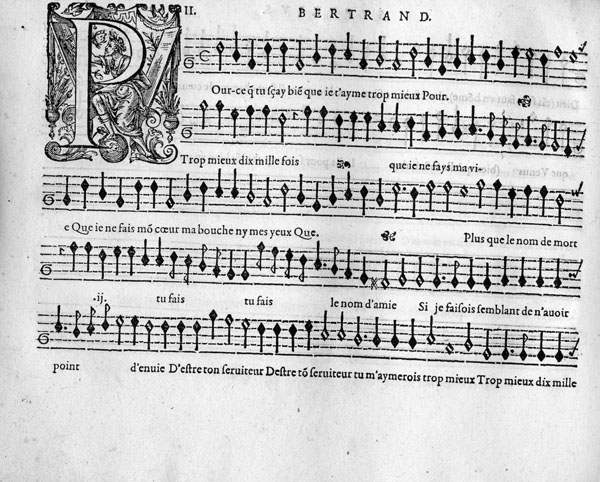 II. BERTRAND.
POur-ce q̃ tu sçay biẽ que ie t'ayme trop mieux Pour.
Trop mieux dix mille fois que ie ne fays ma vi-
e Que ie ne fais mõ cœur ma bouche ny mes yeux Que. Plus que le nom de mort
.ij. tu fais tu fais le nom d'amie Si je faisois semblant de n'auoir
point d'enuie D'estre ton seruiteur Destre tõ seruiteur tu m'aymerois trop mieux Trop mieux dix mille